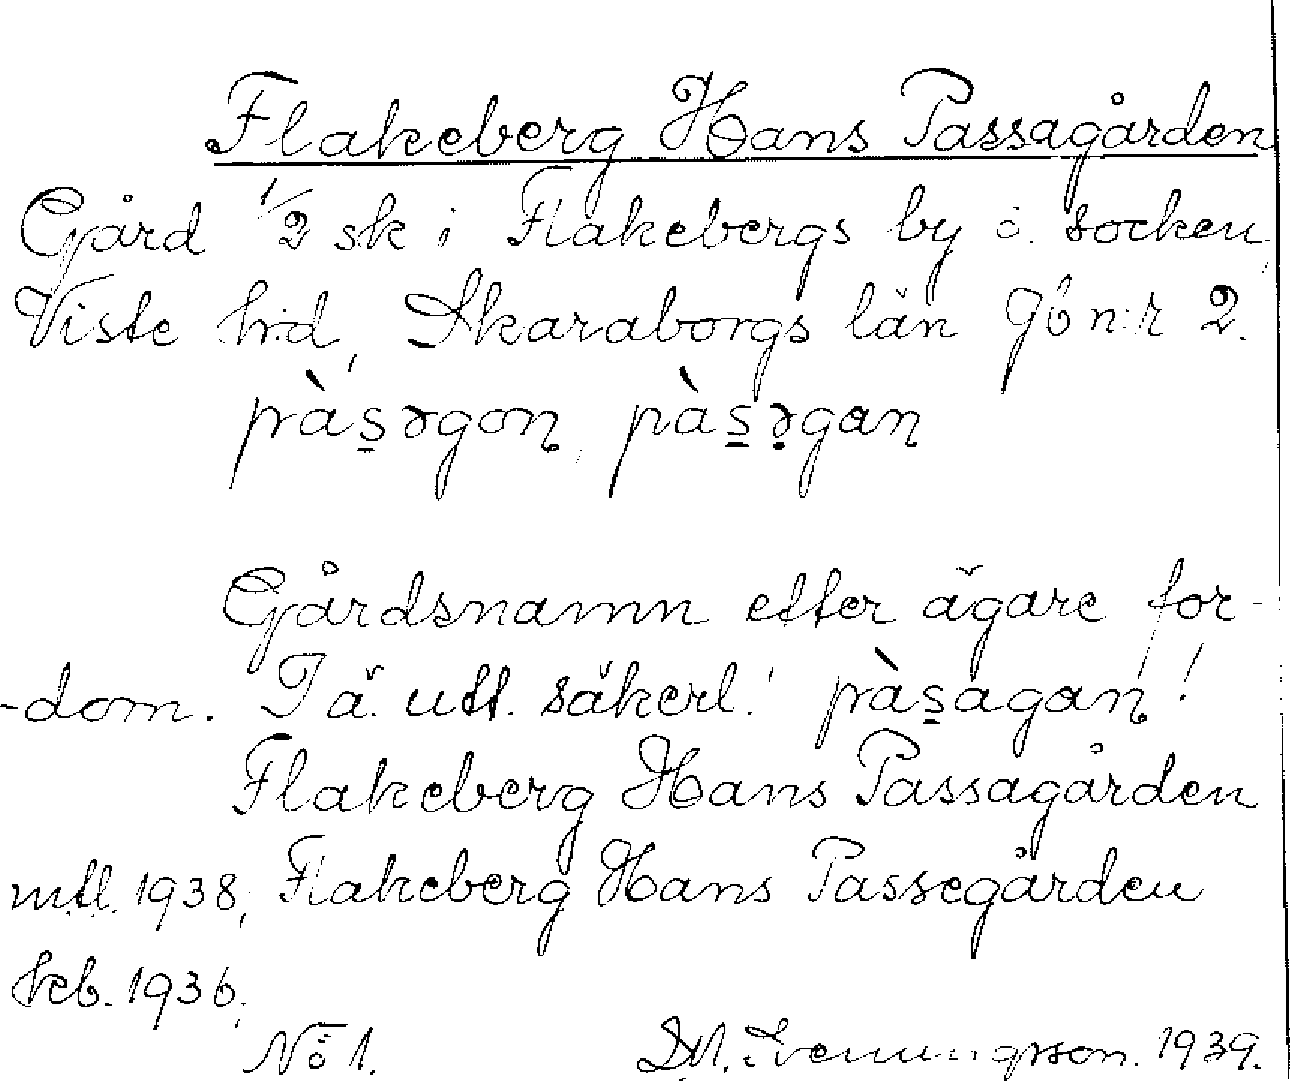 Flakeberg Hans Passagården
Gård 1/2 sk i Flakebergs by o. socken,
Viste hrd, Skaraborgs län Gb n:r 2.
pàs̠əgon, pàs̠ə̣gan
Gårdsnamn efter ägare for-
-dom. Tä. utt. säkerl.! pàs̠agan!
Flakeberg Hans Passagården
mtl. 1938, Flakeberg Hans Passegården
kcb. 1936.
No 1. Svenungsson. 1939.